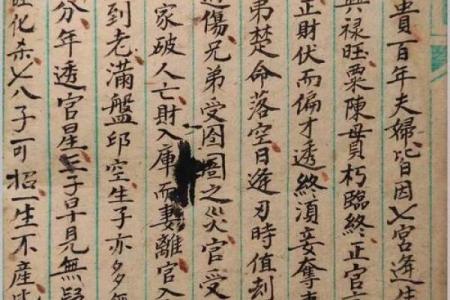 貴百年夫婦皆因七宮逢生
禄旺粟陳貫朽臨終正官
正財伏而偏才透終須妾奪妻
弟楚命落空日逢刃時值刻
過傷兄弟受囹圄之災官受
家破人亡財入庫而妻離官入
到老滿盤印空生子亦多無
分年透官星三子早見無疑
旺化杀七八子可招一生不産